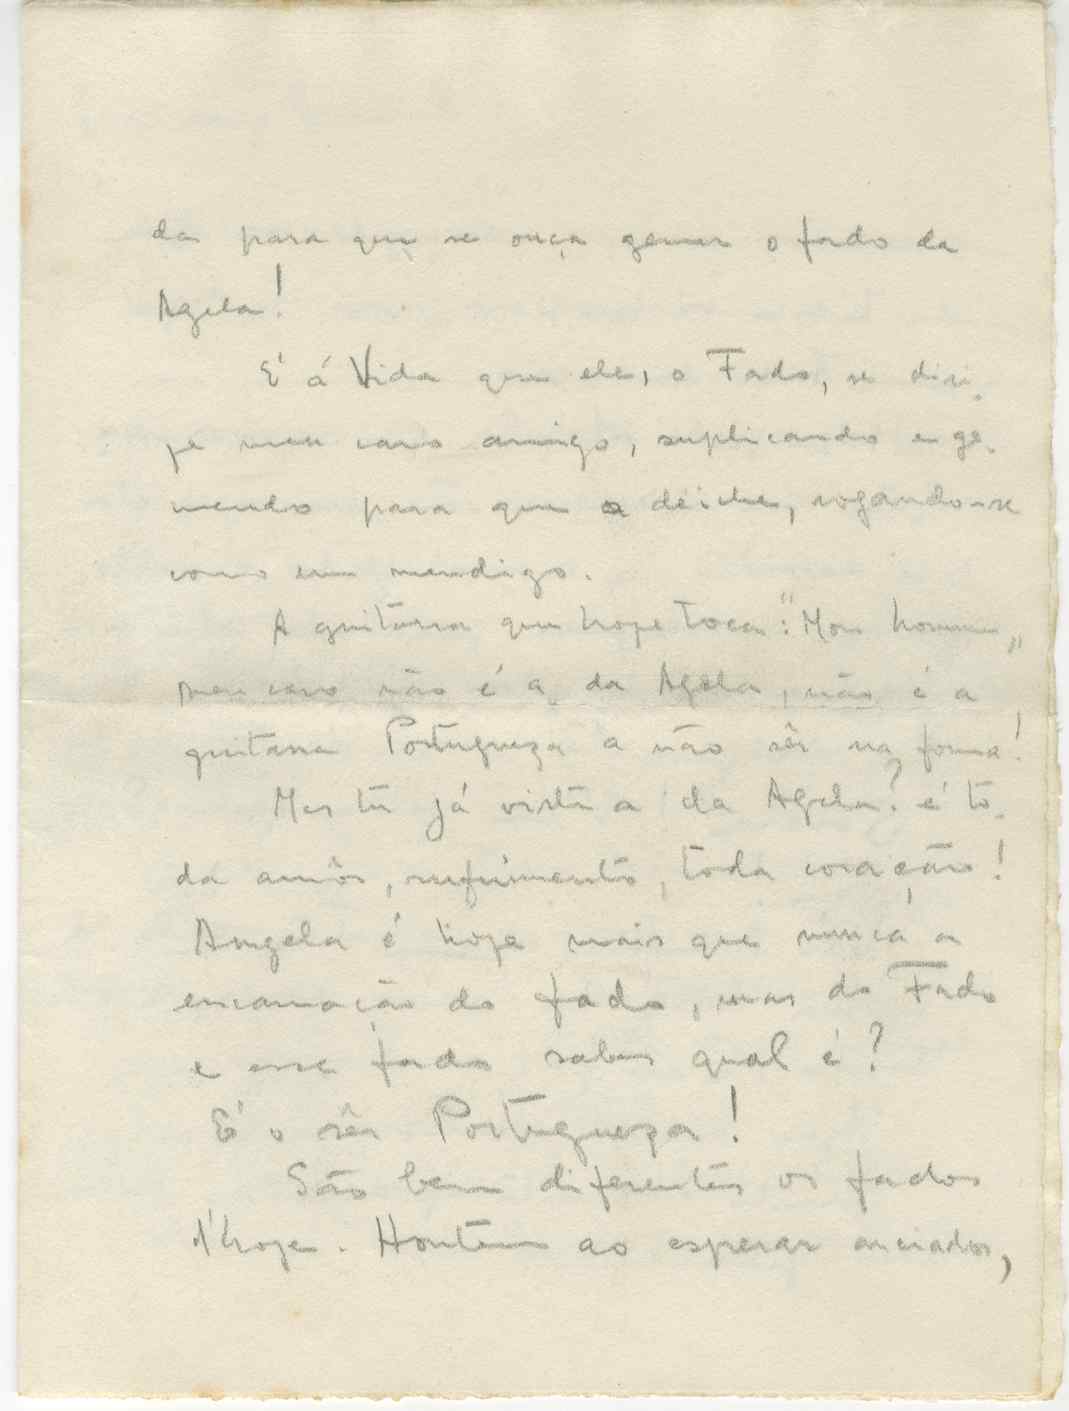 da para que se ouça gemer o fado da
Agela!
E' á Vida que ele, o Fado, se diri-
je meu caro amigo, suplicando e ge-
mendo para que a deiche, rogando-se
como um mendigo.
A guitarra que hoje toca: "Mon homme"
meu caro não é a da Agela, não é a
guitarra Portugueza a não sêr na forma!
Mas tu já viste a da Agela? é to-
da amôr, sufrimento, toda coração!
Angela é hoje mais que nunca a
encarnação do fado, mas do Fado
e esse fado sabes qual é?
E' o sêr Portugueza!
São bem diferentes os fados
d'hoje. Hontem ao esperar anciados,